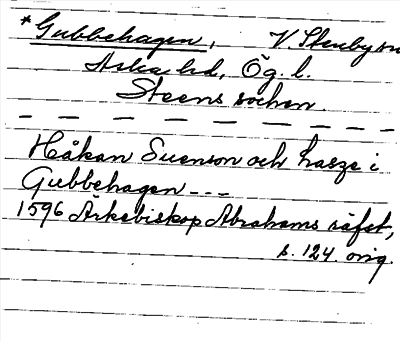 *Gubbehagen, V. Stenby sn
Aska hd, Ög. l.
Steens sochen.
Håkan Suenson och hasze i
Gubbehagen ---
1596 Ärkebiskop Abrahams räfst,
s. 124. orig.